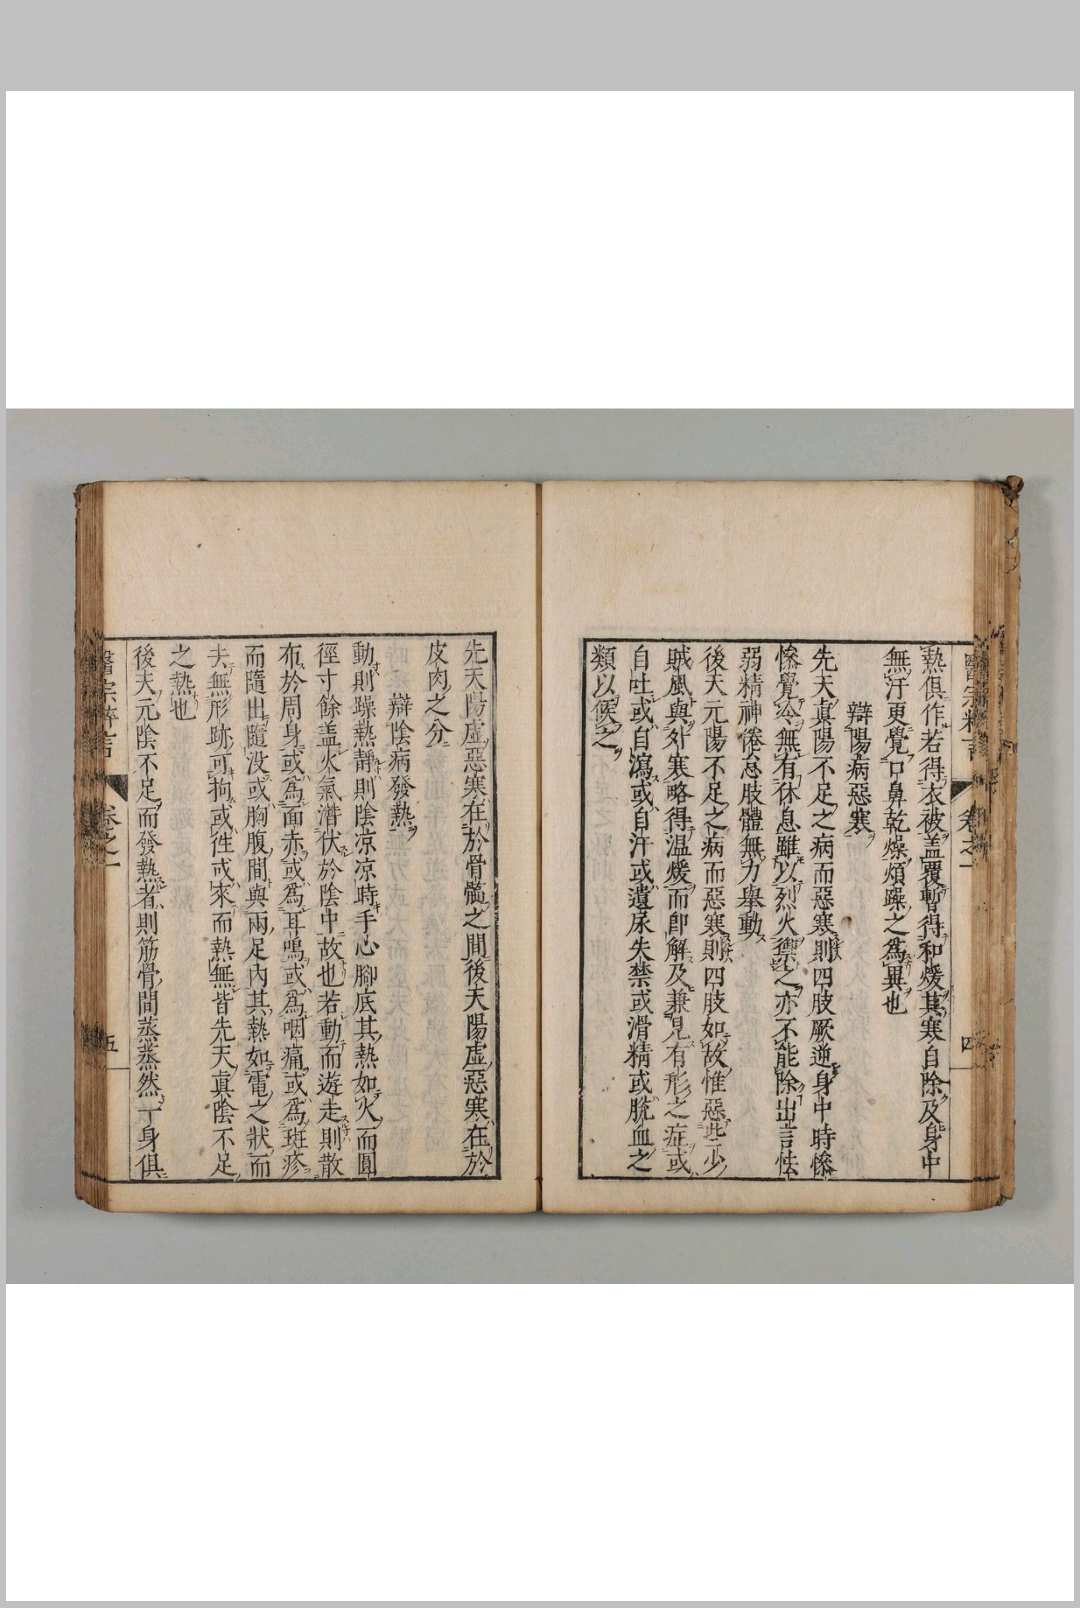 熱俱作若得衣被盖覆暫得和煖其寒自除及身中
無汗更覺口鼻乾燥煩躁之爲異也
辯陽病惡寒
先天真陽不足之病而惡寒則四肢厥逆身中時慘
慘覺冷無有休息雖以烈火禦之亦不能除出言怯
弱精神倦怠肢體無力舉動
後天元陽不足之病而惡寒則四肢如故惟惡些少
賊風與外寒略得温煖而即解及兼見有形之症或
自吐或自瀉或自汗或遺尿失禁或滑精或脫血之
類以候之
先天陽虛惡寒在於骨髓之間後天陽虛惡寒在於
皮肉之分
辯陰病發熱
動則躁熱靜則陰凉凉時手心脚底其熱如火而圍
徑寸餘盖火氣潛伏於陰中故也若動而遊走則散
布於周身或爲面赤或爲耳鳴或爲咽痛或爲斑疹
而隨出隨没或胸腹間與兩足內其熱如電之狀而
去無形跡可拘或徃或來而熱無皆先天真陰不足
之熱也
後天元陰不足而發熱者則筋骨間蒸蒸然一身俱
醫宗粹言 卷之一 五